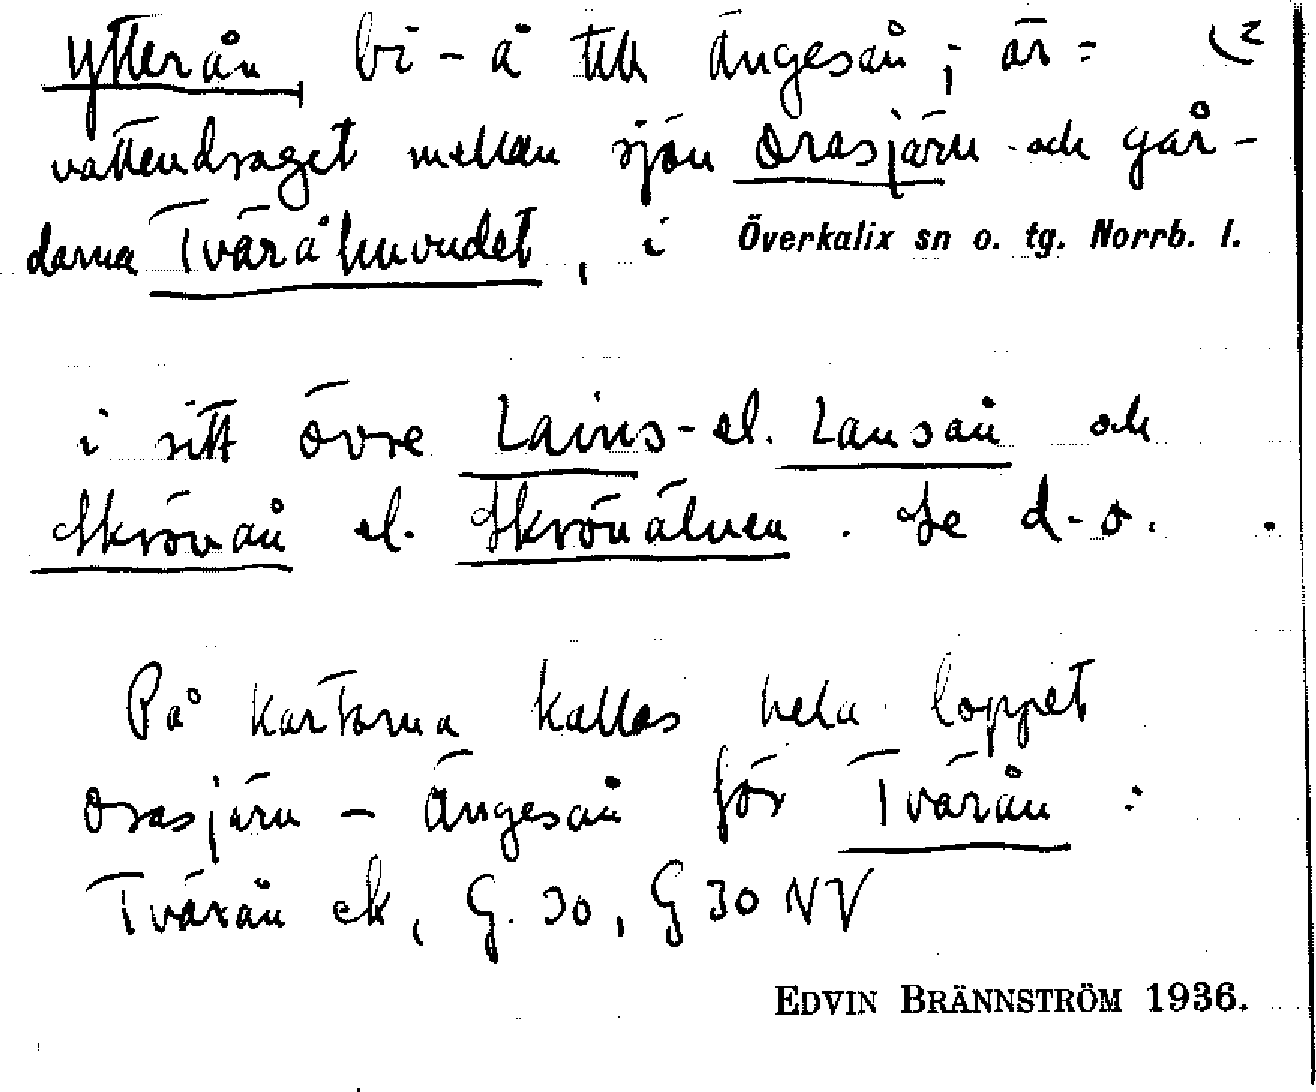 Ytterån, bi-å till Ängesån; är = (2
vattendraget mellan sjön Orasjärv och går-
darna Tväråhuvudet, i Överkalix sn o. tg. Norrb. l.
i sitt övre Lains- el. Lansån och
Skrövån el. Skrövälven. Se d-o.
På kartorna kallas hela loppet
Orasjärv - Ängesån för Tvärån:
Tvärån ek, G. 30, G 30 NV
EDVIN BRÄNNSTRÖM 1936.